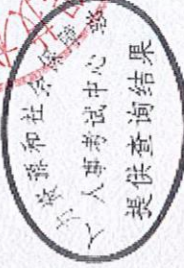 人力资源和社会保障部
人事考试中心
提供查询结果